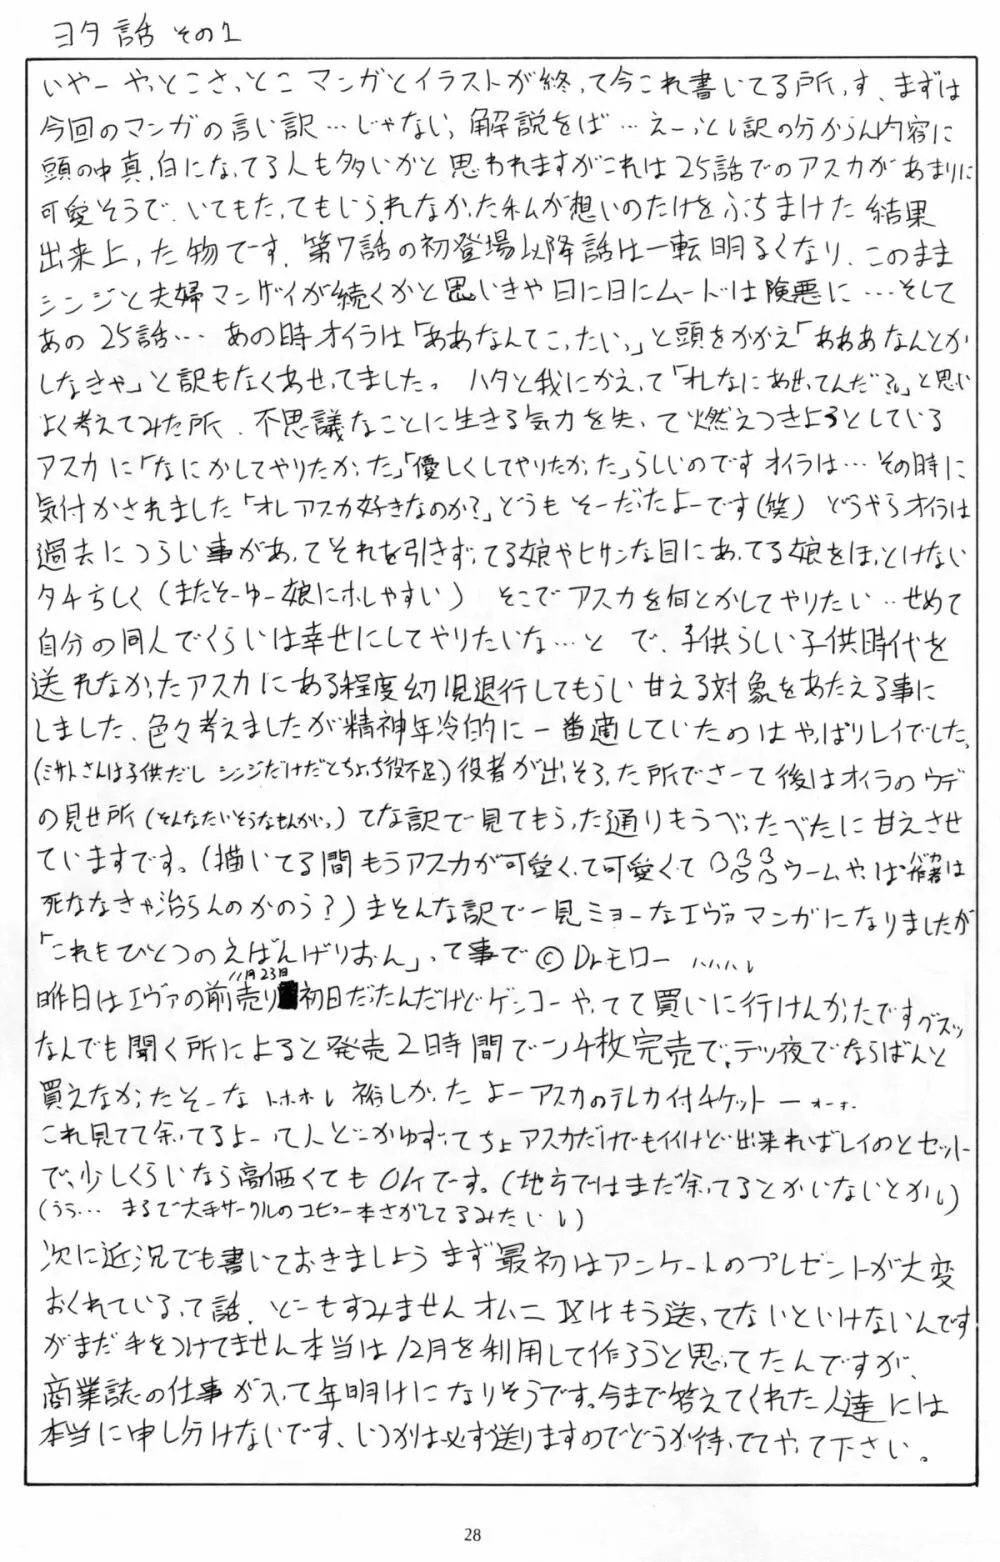 ヨタ話 その1
いやーやっとこさっとこ マンガとイラストが終って今これ書いてる所っす、まずは
今回のマンガの言い訳…じゃない、解説をば…えーっとし訳の分からん内容に
頭の中真っ白になってる人も多いかと思われますがこれは25話でのアスカがあまりに
可愛そうで、いてもたってもいられなかった私が想いのたけをぶちまけた結果
出来上った物です、第7話の初登場以降話は一転明るくなり、このまま
シンジと夫婦マンザイが続くかと思いきや日に日にムードは険悪に…そして
あの25話… あの時オイラは「ああなんてこったいっ」と頭をかかえ「あああなんとか
しなきゃ」と訳もなくあせってました。 ハタと我にかえって「オレなにあせってんだ?」と思い
よく考えてみた所、不思議なことに生きる気力を失って燃えつきようとしている
アスカに「なにかしてやりたかった」「優しくしてやりたかった」らしいのです オイラは…その時に
気付かされました「オレアスカ好きなのか?」どうもそーだったよーです(笑) どうやらオイラは
過去につらい事があってそれを引きずってる娘やヒサンな目にあってる娘をほっとけない
タチらしく(またそーゆー娘にホレやすい) そこでアスカを何とかしてやりたい…せめて
自分の同人でくらいは幸せにしてやりたいな…と で、子供らしい子供時代を
送れなかったアスカにある程度幼児退行してもらい甘える対象をあたえる事に
しました、色々考えましたが精神年冷的に一番適していたのはやっぱりレイでした、
(ミサトさんは子供だし シンジだけだとちょっち役不足)役者が出そろった所でさーて後はオイラのウデ
の見せ所(そんなたいそうなもんかいっ)てな訳で見てもらった通りもうべったべたに甘えさせ
ていますです。(描いてる間もうアスカが可愛くって可愛くて ウームやっぱ作者バカは
死ななきゃ治らんのかのう?)まそんな訳で一見ミョーなエヴァマンガになりましたが
「これもひとつのえばんげりおん」って事で ©Dr.モロー
昨日は11月23日エヴァの前売り初日だったんだけどゲンコーやってて買いに行けんかったですグスッ
なんでも聞く所によると発売2時間で4枚完売で、テツ夜でならばんと
買えなかったそーな トホホ 裕しかったよーアスカのテレカ付チケットー ォーォ
これ見てて余ってるよーって人どーかゆずってちょ アスカだけでもイイけど出来ればレイのとセット
で、少しくらいなら高価くてもOKです。(地方ではまだ余ってるとかいないとか)
(うぅ… まるで大手サークルのコピー本さがしてるみたい)
次に近況でも書いておきましょう まず最初はアンケートのプレゼントが大変
おくれているって話、どーもすみません オムニ はもう送ってないといけないんです
がまだ手をつけてません本当は12月を利用して作ろうと思ってたんですが、
商業誌の仕事が入って年明けになりそうです。今まで答えてくれた人達には
本当に申し分けないです、いつかは必ず送りますのでどうか待っててやって下さい。
28